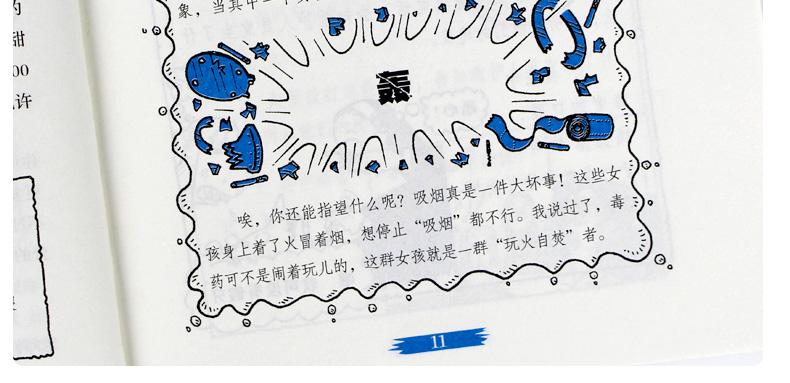 的
甜
00
许
象，当其中一个
轰
唉，你还能指望什么呢？吸烟真是一件大坏事！这些女
孩身上着了火冒着烟，想停止“吸烟”都不行。我说过了，毒
药可不是闹着玩儿的，这群女孩就是一群“玩火自焚”者。
11